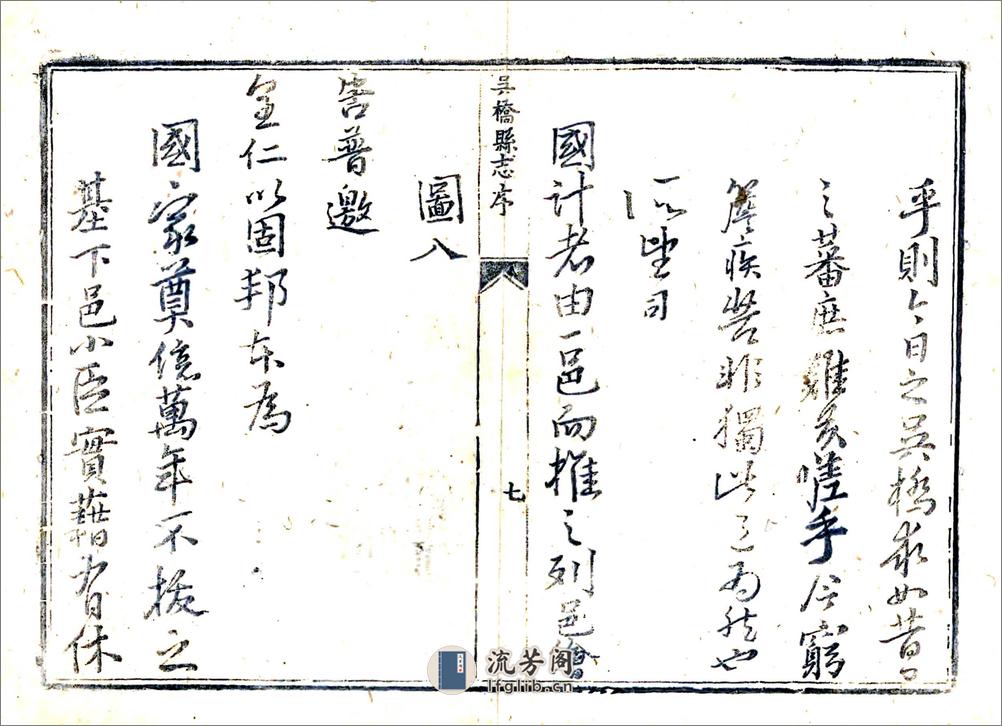 乎則今日之吳橋求如昔日
之蕃庶難矣嗟乎今窮
簷疾苦非獨此邑為然也
所望司
國計者由一邑而推之列邑繪
圖入
吳橋縣志序
七
告普邀
皇仁以固邦本為
國家奠億萬年不拔之
基下邑小臣實藉有休
流芳阁
lfglib.cn